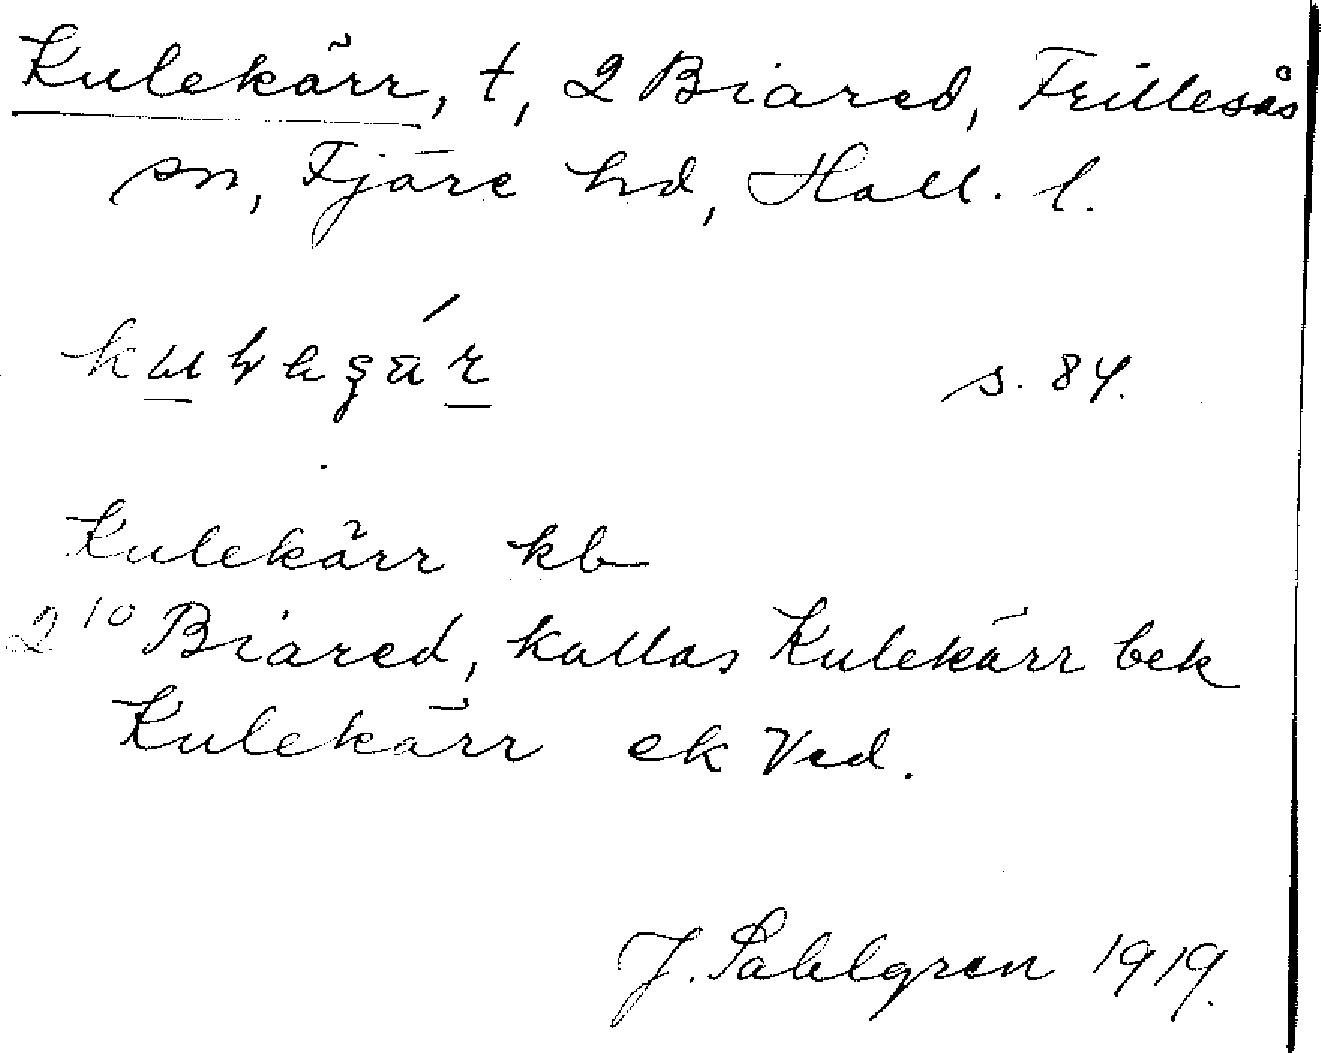 Kulekärr, t, 2 Biared, Frillesås
sn, Fjäre hd, Hall. l.
s. 84.
Kulekärr kb
2 10 Biared, kallas Kulekärr bek
Kulekärr ek Ved.
J. Sahlgren 1919.